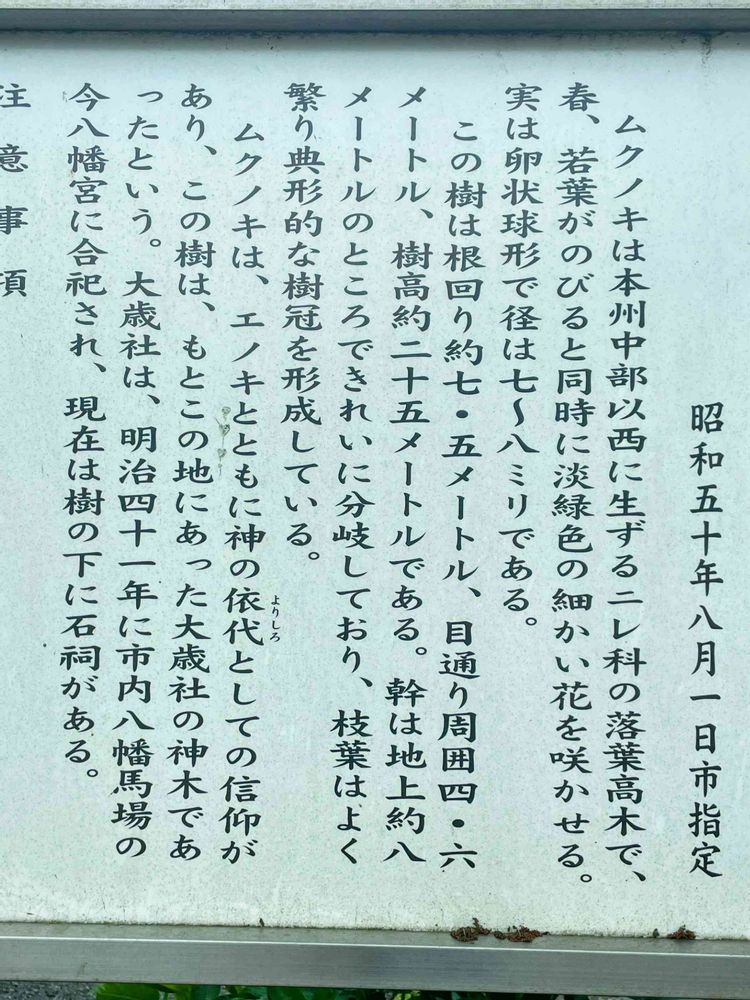 昭和五十年八月一日市指定
ムクノキは本州中部以西に生ずるニレ科の落葉高木で、
春、若葉がのびると同時に淡緑色の細かい花を咲かせる。
実は卵状球形で径は七〜八ミリである。
この樹は根回り約七・五メートル、目通り周囲四・六
メートル、樹高約二十五メートルである。幹は地上約八
メートルのところできれいに分岐しており、枝葉はよく
繁り典形的な樹冠を形成している。
ムクノキは、エノキとともに神の依代としての信仰が
よりしろ
あり、この樹は、もとこの地にあった大歳社の神木であ
ったという。大歳社は、明治四十一年に市内八幡馬場の
今八幡宮に合祀され、現在は樹の下に石祠がある。
注意事項